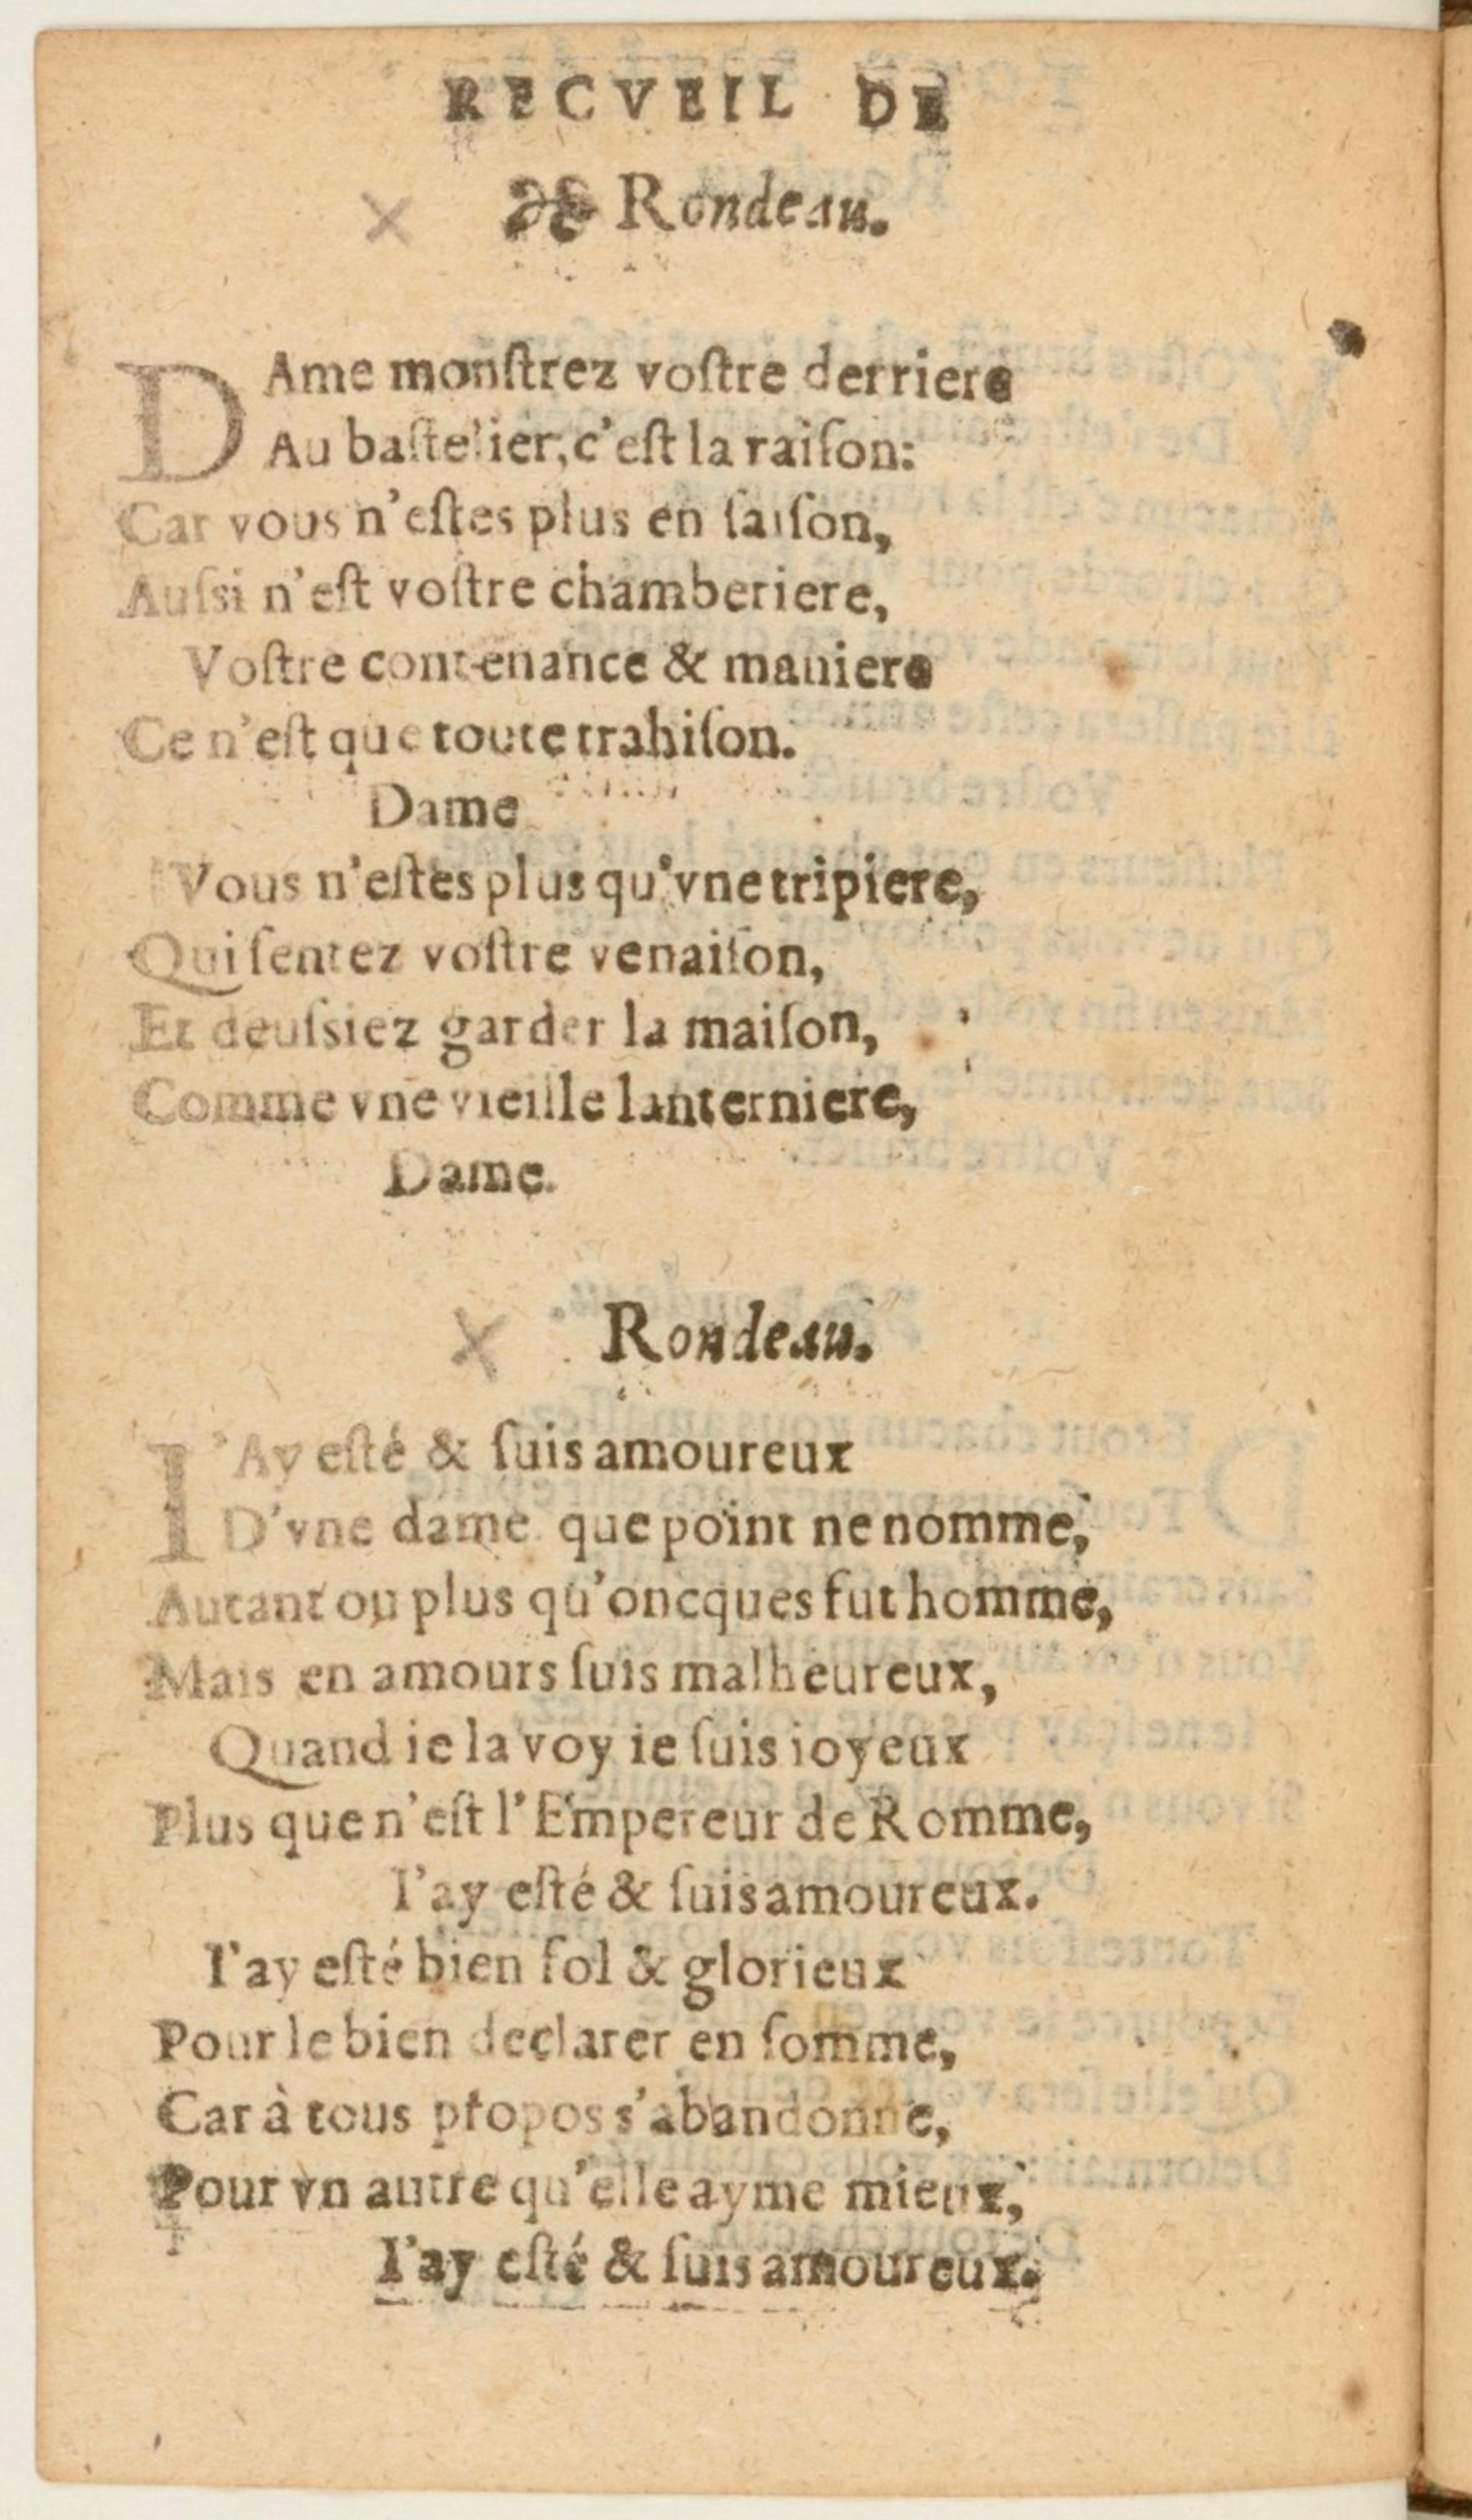 RECVEIL DE
Rondeau.
DAme monſtrez voſtre derriere
Au baſtelier, c'eſt la raiſon:
Car vous n'eſtes plus en ſaiſon,
Auſsi n'eſt voſtre chamberiere,
Voſtre contenance & maniere
Ce n'eſt que toute trahiſon.
Dame
Vous n'eſtes plus qu'vne tripiere,
Qui ſentez voſtre venaiſon,
Et deuſsiez garder la maiſon,
Comme vne vieille lanterniere,
Dame.
Rondeau.
I'Ay eſté & ſuis amoureux
D'vne dame que point ne nomme,
Autant ou plus qu'oncques fut homme,
Mais en amours ſuis malheureux,
Quand ie la voy ie ſuis ioyeux
Plus que n'eſt l'Empereur de Romme,
I'ay eſté & ſuis amoureux.
I'ay eſté bien fol & glorieux
Pour le bien declarer en ſomme,
Car à tous propos s'abandonne,
Pour vn autre qu'elle ayme mieux,
I'ay eſté & ſuis amoureux.